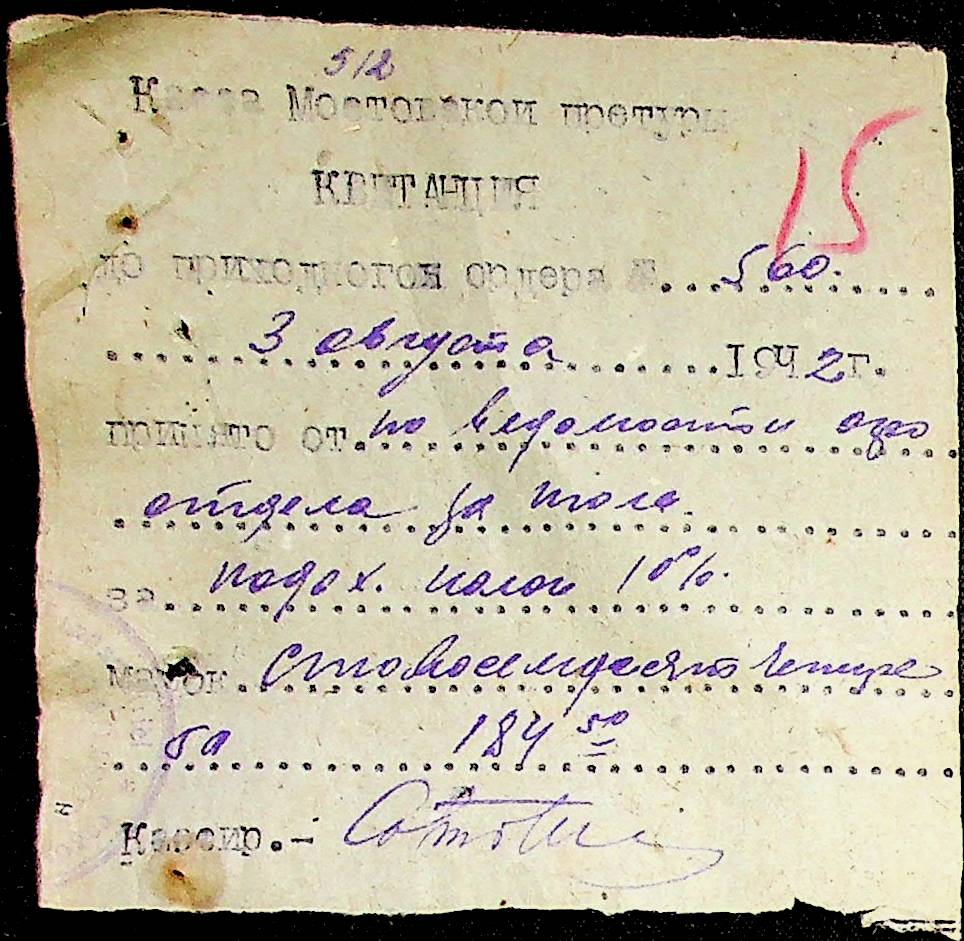 512
Касса Мостовской претуры
15
КВИТАНЦИЯ
до приходногои ордера №... 560.
3 августа 1942г.
принято от по ведомости
отдела за
за подох. налог 10%.
марок Стовосемдесят четыре
184 50
Кассир.-